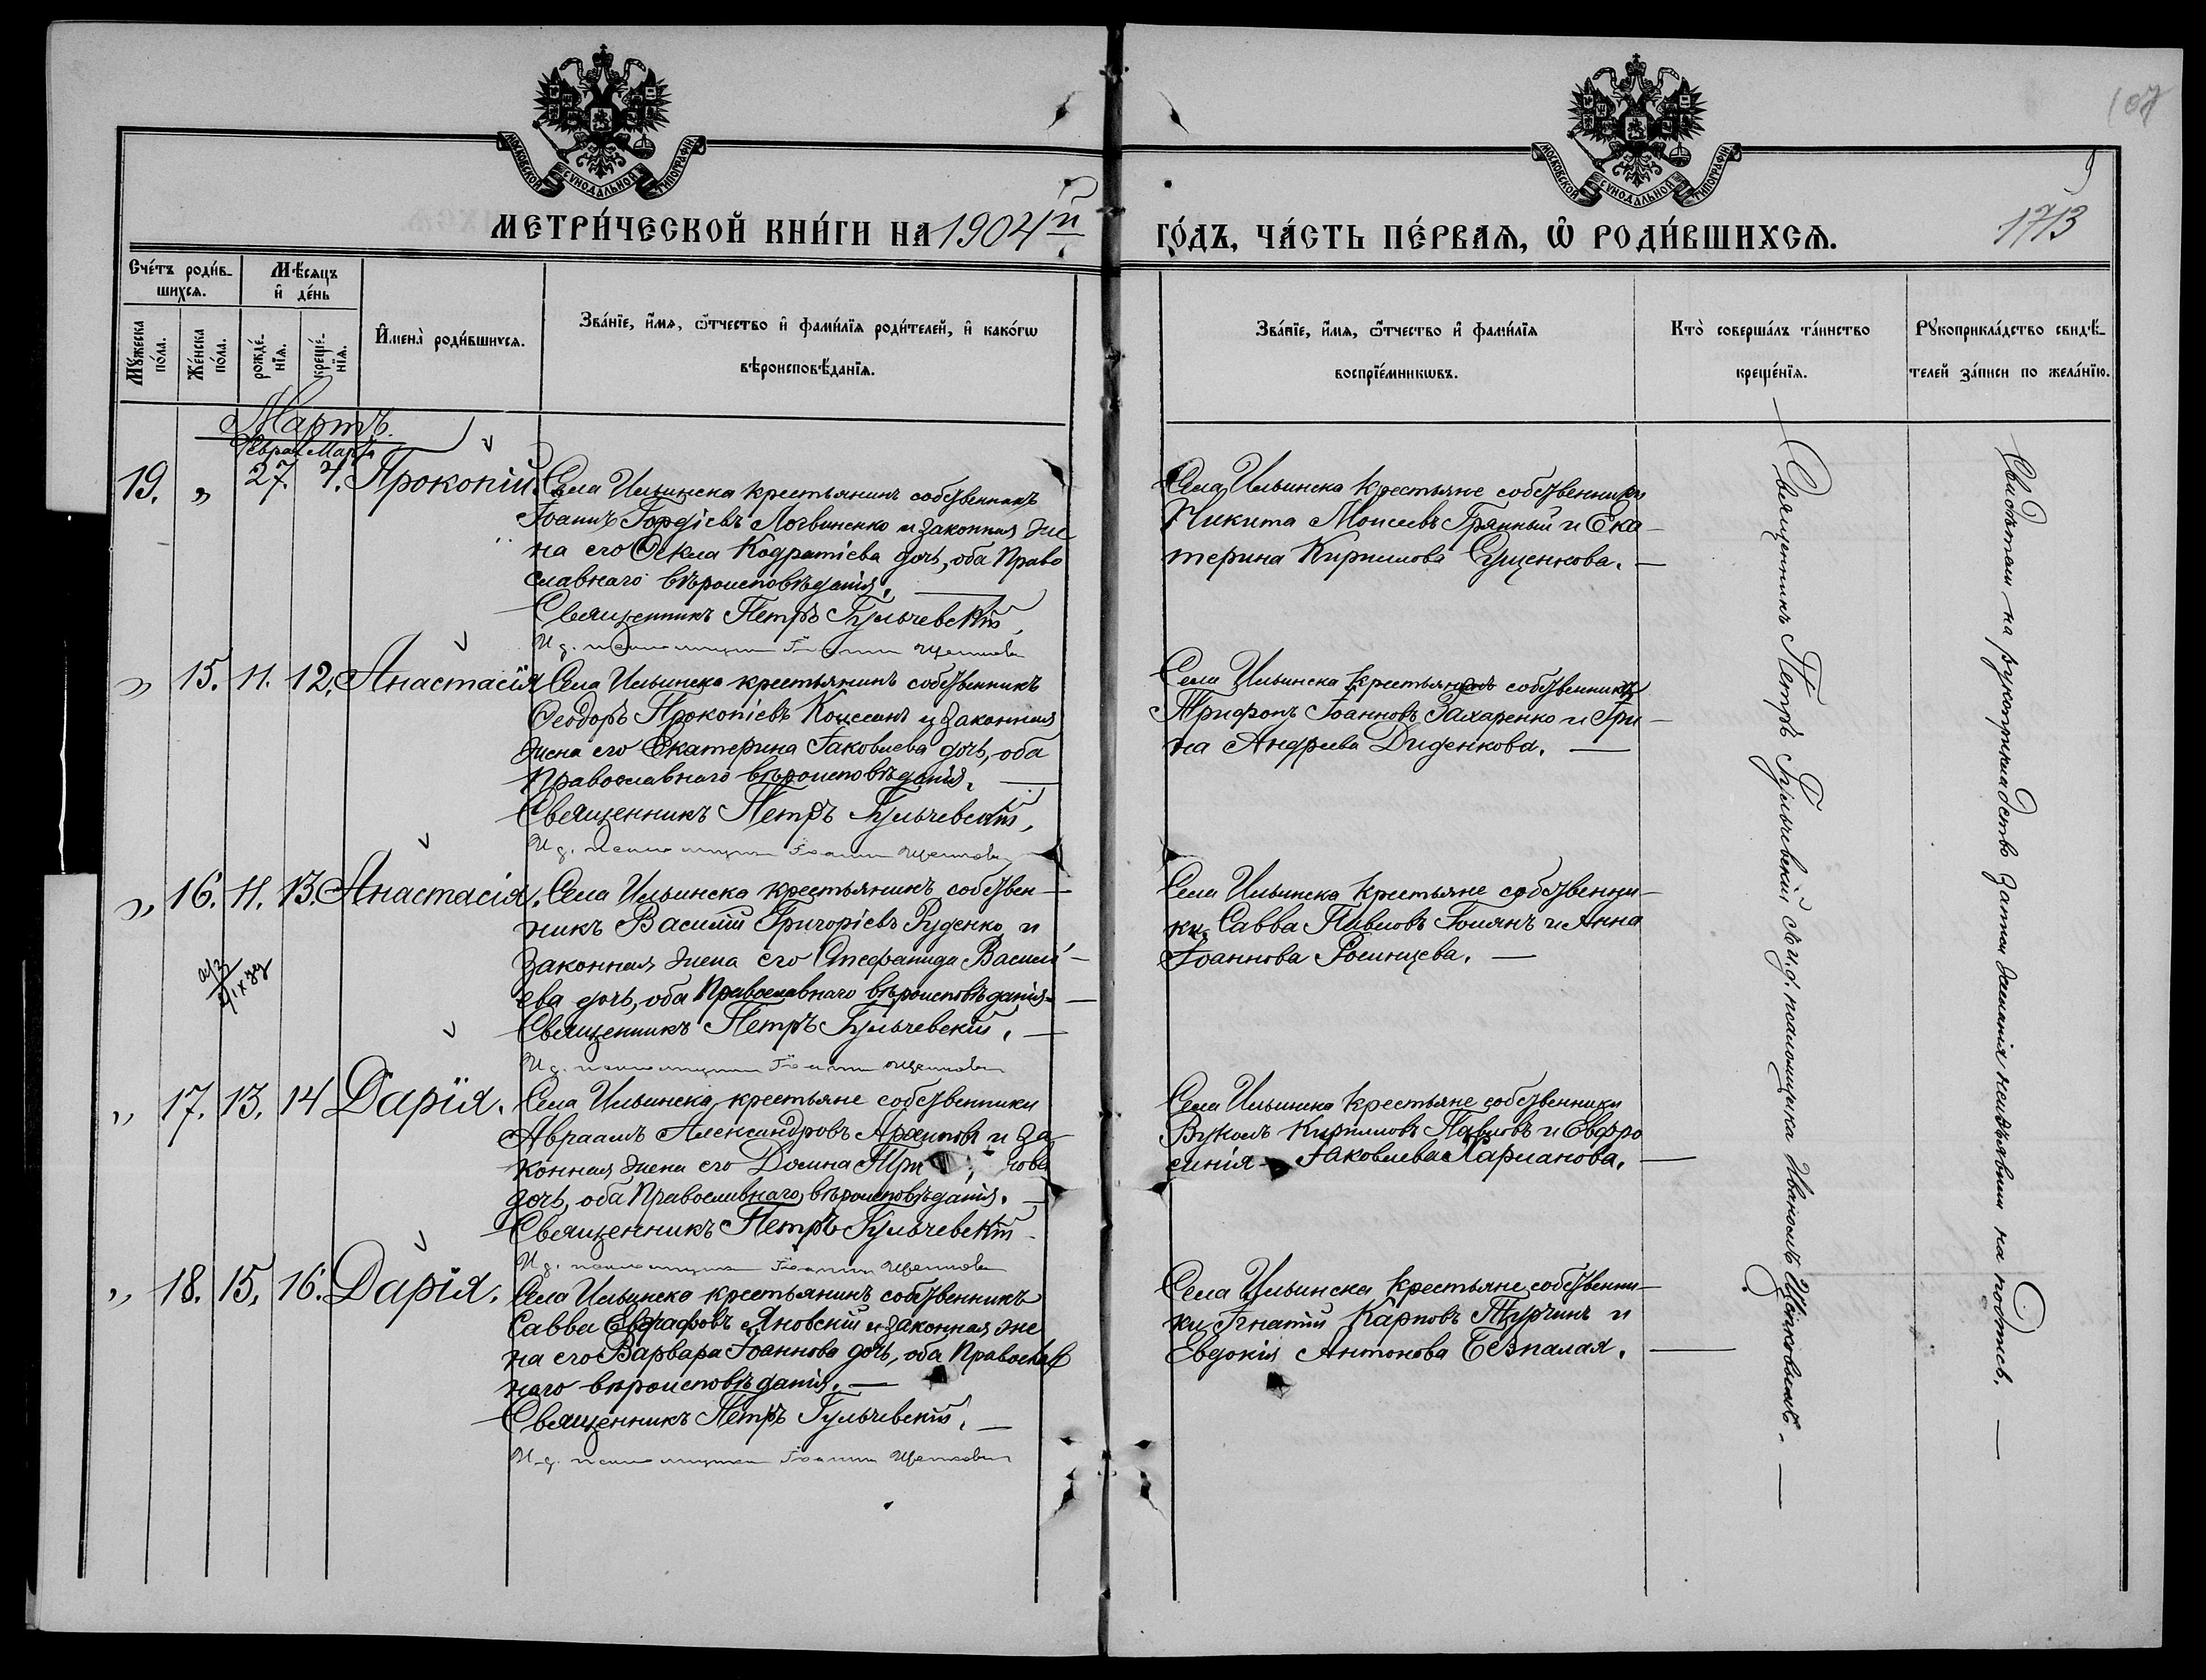 107
МОСКОВСКОЙ СѴНОДАЛЬНОЙ ТИПОГРАФІИ
МОСКОВСКОЙ СѴНОДАЛЬНОЙ ТИПОГРАФІИ
МЕТРИ́ЧЕСКОЙ КНИ́ГИ НА 1904й ГО́ДЪ, ЧА́СТЬ ПЕ́РВАЯ, Ѡ РОДИ́ВШИХСЯ.
1713
Сче́тъ роди́в-
шихся.
Мѣ́сяцъ
и де́нь
Мꙋ́жеска
по́ла.
Же́нска
по́ла.
рожде́-
нїя.
креще́-
нїя.
Имена̀ роди́вшихся.
Зва́нїе, и́мя, ѻ́тчество и фами́лїя роди́телей, и како́гѡ
вѣроисповѣ́данїя.
Зва́нїе, и́мя, ѻ́тчество и фами́лїя
воспрїе́мникѡвъ.
Кто̀ соверша́лъ та́инство
креще́нїя.
Рꙋкоприкла́дство свидѣ́-
телей за́писи по жела́нїю.
Мартъ.
Февра Мар
19. „ 27. 4. Прокопій.
Села Ильинска крестьянинъ собственникъ
Іоаннъ Гордіевъ Логвиненко и законная же
на его Ѳекла Кодратіева дочь, оба Право
славнаго вѣроисповѣданія.
Священникъ Петръ Гульчевскій
И д. псаломщика Іоаннъ
Села Ильинска крестьяне собственники
Никита Моисеевъ Грянный и Ека-
терина Кириллова Сущенкова. —
„ 15. 11. 12. Анастасія
Села Ильинска крестьянинъ собственникъ
Ѳеодоръ Прокопіевъ Коцегань и законная
жена его Екатерина Іаковлева дочь, оба
Православнаго вѣроисповѣданія. —
Священникъ Петръ Гульчевскій,
И д. псаломщика Іоаннъ
Села Ильинска крестьяне собственники
Трифонъ Іоанновъ Захаренко и Іри-
на Андреева Диденкова. —
„ 16. 11. 13. Анастасія.
Села Ильинска крестьянинъ собствен-
никъ Василій Григоріевъ Руденко и
законная жена его Епефанида Василі-
ева дочь, оба Православнаго вѣроисповѣданія. —
Священникъ Петръ Гульчевскій. —
И д. псаломщика Іоаннъ
Села Ильинска крестьяне собственни-
ки, Савва Павловъ Гоманъ и Анна
Іоаннова Росинцева. —
„ 17. 13. 14 Дарія.
Села Ильинска, крестьяне собственники
Авраамъ Александровъ Архиповъ и за-
конная жена его Домна Три нова
дочь, оба Православнаго вѣроисповѣданія. —
Священникъ Петръ Гульчевскій
И д. псаломщика Іоаннъ
Села Ильинска крестьяне собственники
Вуколъ Кирилловъ Павловъ и Евфро
синія Іаковлева Ларианова. —
„ 18. 15. 16. Дарія.
Села Ильинска крестьянинъ собственникъ
Савва Евграфовъ Яновскій и законная же
на его Варвара Іоаннова дочь, оба Православ
наго вѣроисповѣданія. —
Священникъ Петръ Гульчевскій. —
И д. псаломщика Іоаннъ
Села Ильинска крестьяне собственни-
ки Игнатій Карповъ Турчинъ и
Евдокія Антонова Безпалая. —
Священникъ Петръ Гульчевскій съ и.д. псаломщика Иваномъ Щепковымъ. —
Свидѣтели на рукоприкладство записи желанія неизъявили на подпись. —